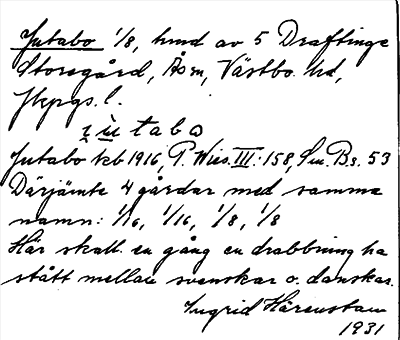 Jutabo 1/8, hmd av 5 Draftinge
Storegård, Ås sn, Västbo hd,
Jkpgs. l.
j ù t a b ω
Jutabo kb 1916, P. Wies. III: 158, Sm. Bs. 53
Därjämte 4 gårdar med samma
namn: 1/16, 1/16, 1/8, 1/8
Här skall en gång en drabbning ha
stått mellan svenskar o. danskar.
Ingrid Härenstam
1931